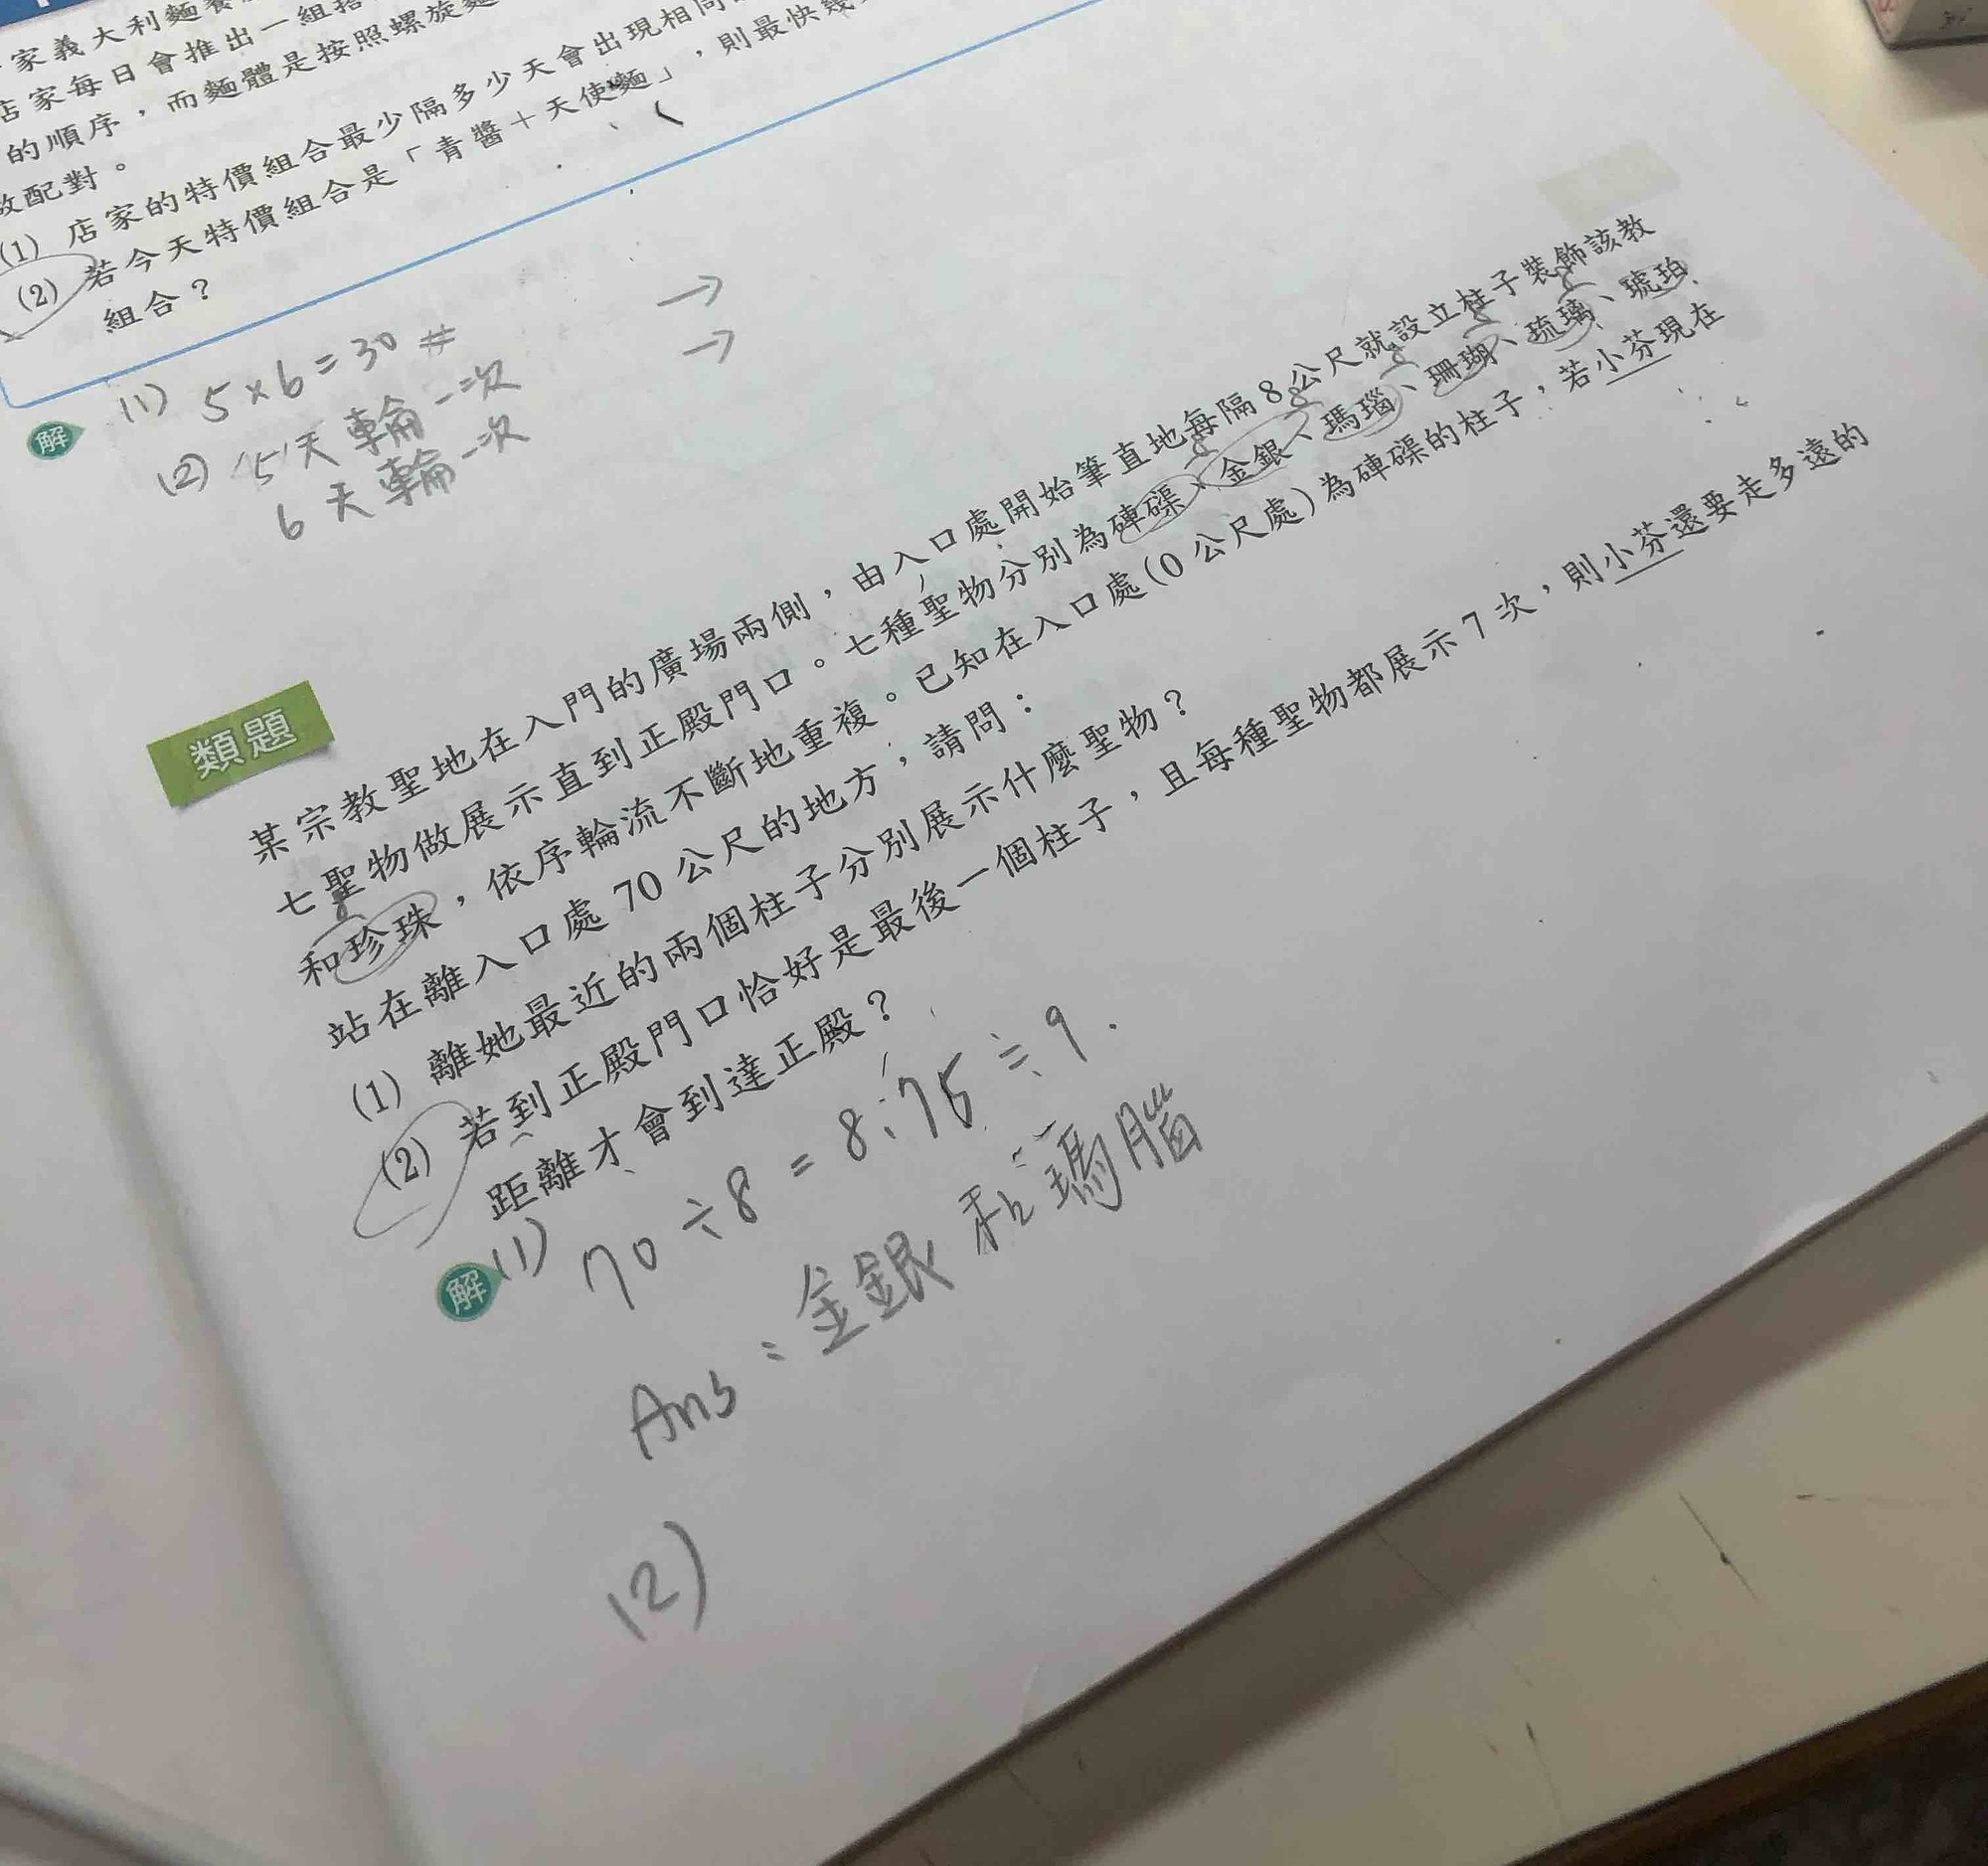 家義大利麵餐
店家每日會推出一組搭
的順序，而麵體是按照螺旋麵
做配對。
(1) 店家的特價組合最少隔多少天會出現相同
(2) 若今天特價組合是「青醬＋天使麵」，則最快幾
組合？
解
(1) 5×6=30 #
(2) 5天輪一次
6天輪一次
→
→
類題
某宗教聖地在入門的廣場兩側，由入口處開始筆直地每隔8公尺就設立柱子裝飾該教
七聖物做展示直到正殿門口。七種聖物分別為硨磲、金銀、瑪瑙、珊瑚、琉璃、琥珀
和珍珠，依序輪流不斷地重複。已知在入口處(0公尺處)為硨磲的柱子，若小芬現在
站在離入口處70公尺的地方，請問：
(1) 離她最近的兩個柱子分別展示什麼聖物？
(2) 若到正殿門口恰好是最後一個柱子，且每種聖物都展示7次，則小芬還要走多遠的
距離才會到達正殿？
解
(1) 70÷8=8.75≒9.
Ans：金銀和瑪腦
(2)